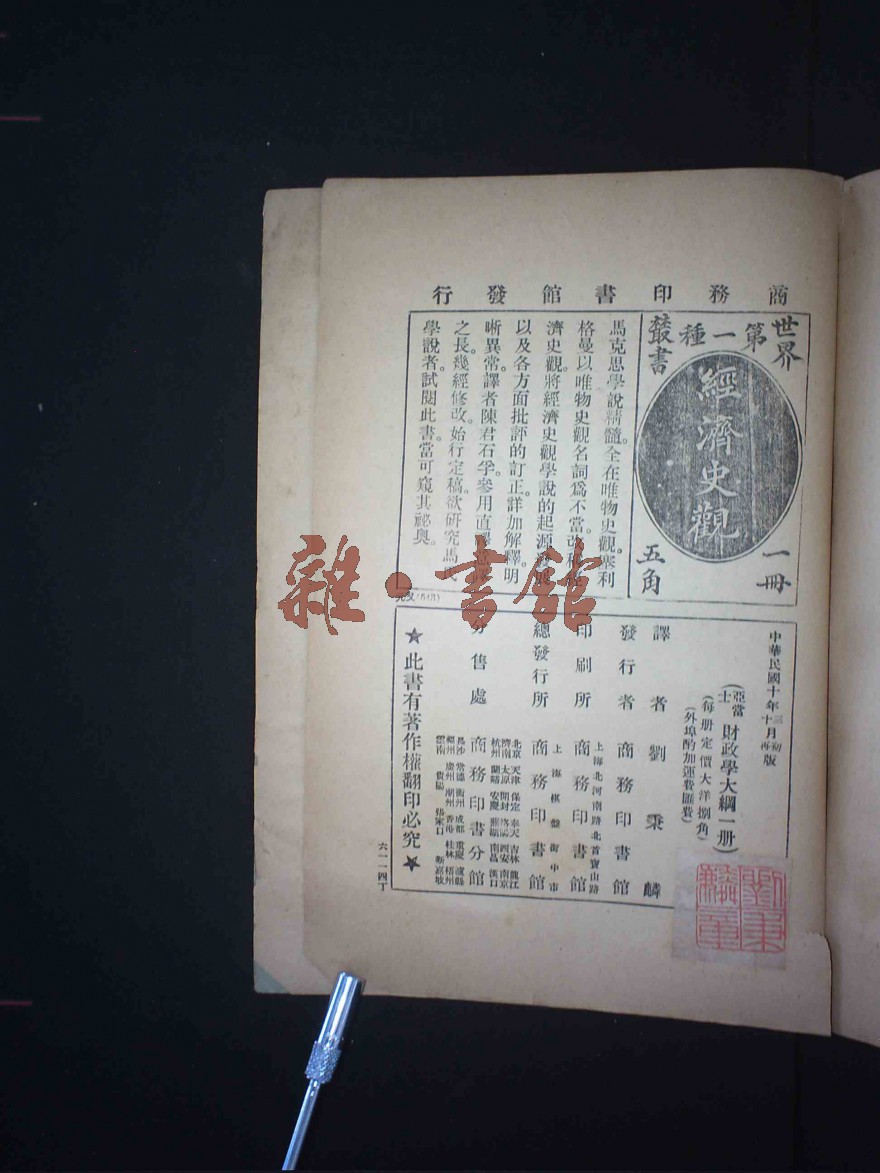 商務印書館發行
世界叢書
第一種
經濟史觀
一冊
五角
馬克思學說精髓。全在唯物史觀。塞利
格曼以唯物史觀名詞爲不當。改稱經
濟史觀。將經濟史觀學說的起源
以及各方面批評的訂正。詳加解釋。明
晰異常。譯者陳君石孚。參用直譯意譯
之長。幾經修改。始行定稿。欲研究馬氏
學說者。試閱此書。當可窺其祕奧。
中華民國十年三月初版
十月再版
(亞當士)財政學大綱一册)
(每册定價大洋捌角)
(外埠酌加運費匯費)
譯者 劉秉麟
發行者 商務印書館
上海北河南路北首寶山路
印刷所 商務印書館
上海棋盤街中市
總發行所 商務印書館
北京 天津 保定 奉天 吉林 龍江
濟南 太原 開封 西安 南京
杭州 蘭谿 安慶 蕪湖 南昌 漢口
分售處 商務印書分館
長沙 常德 衡州 成都 重慶 瀘縣
福州 廣州 潮州 香港 桂林 梧州
雲南 貴陽 張家口 新嘉坡
★此書有著作權翻印必究★
六一一四丁
劉秉麟章
雜·書館